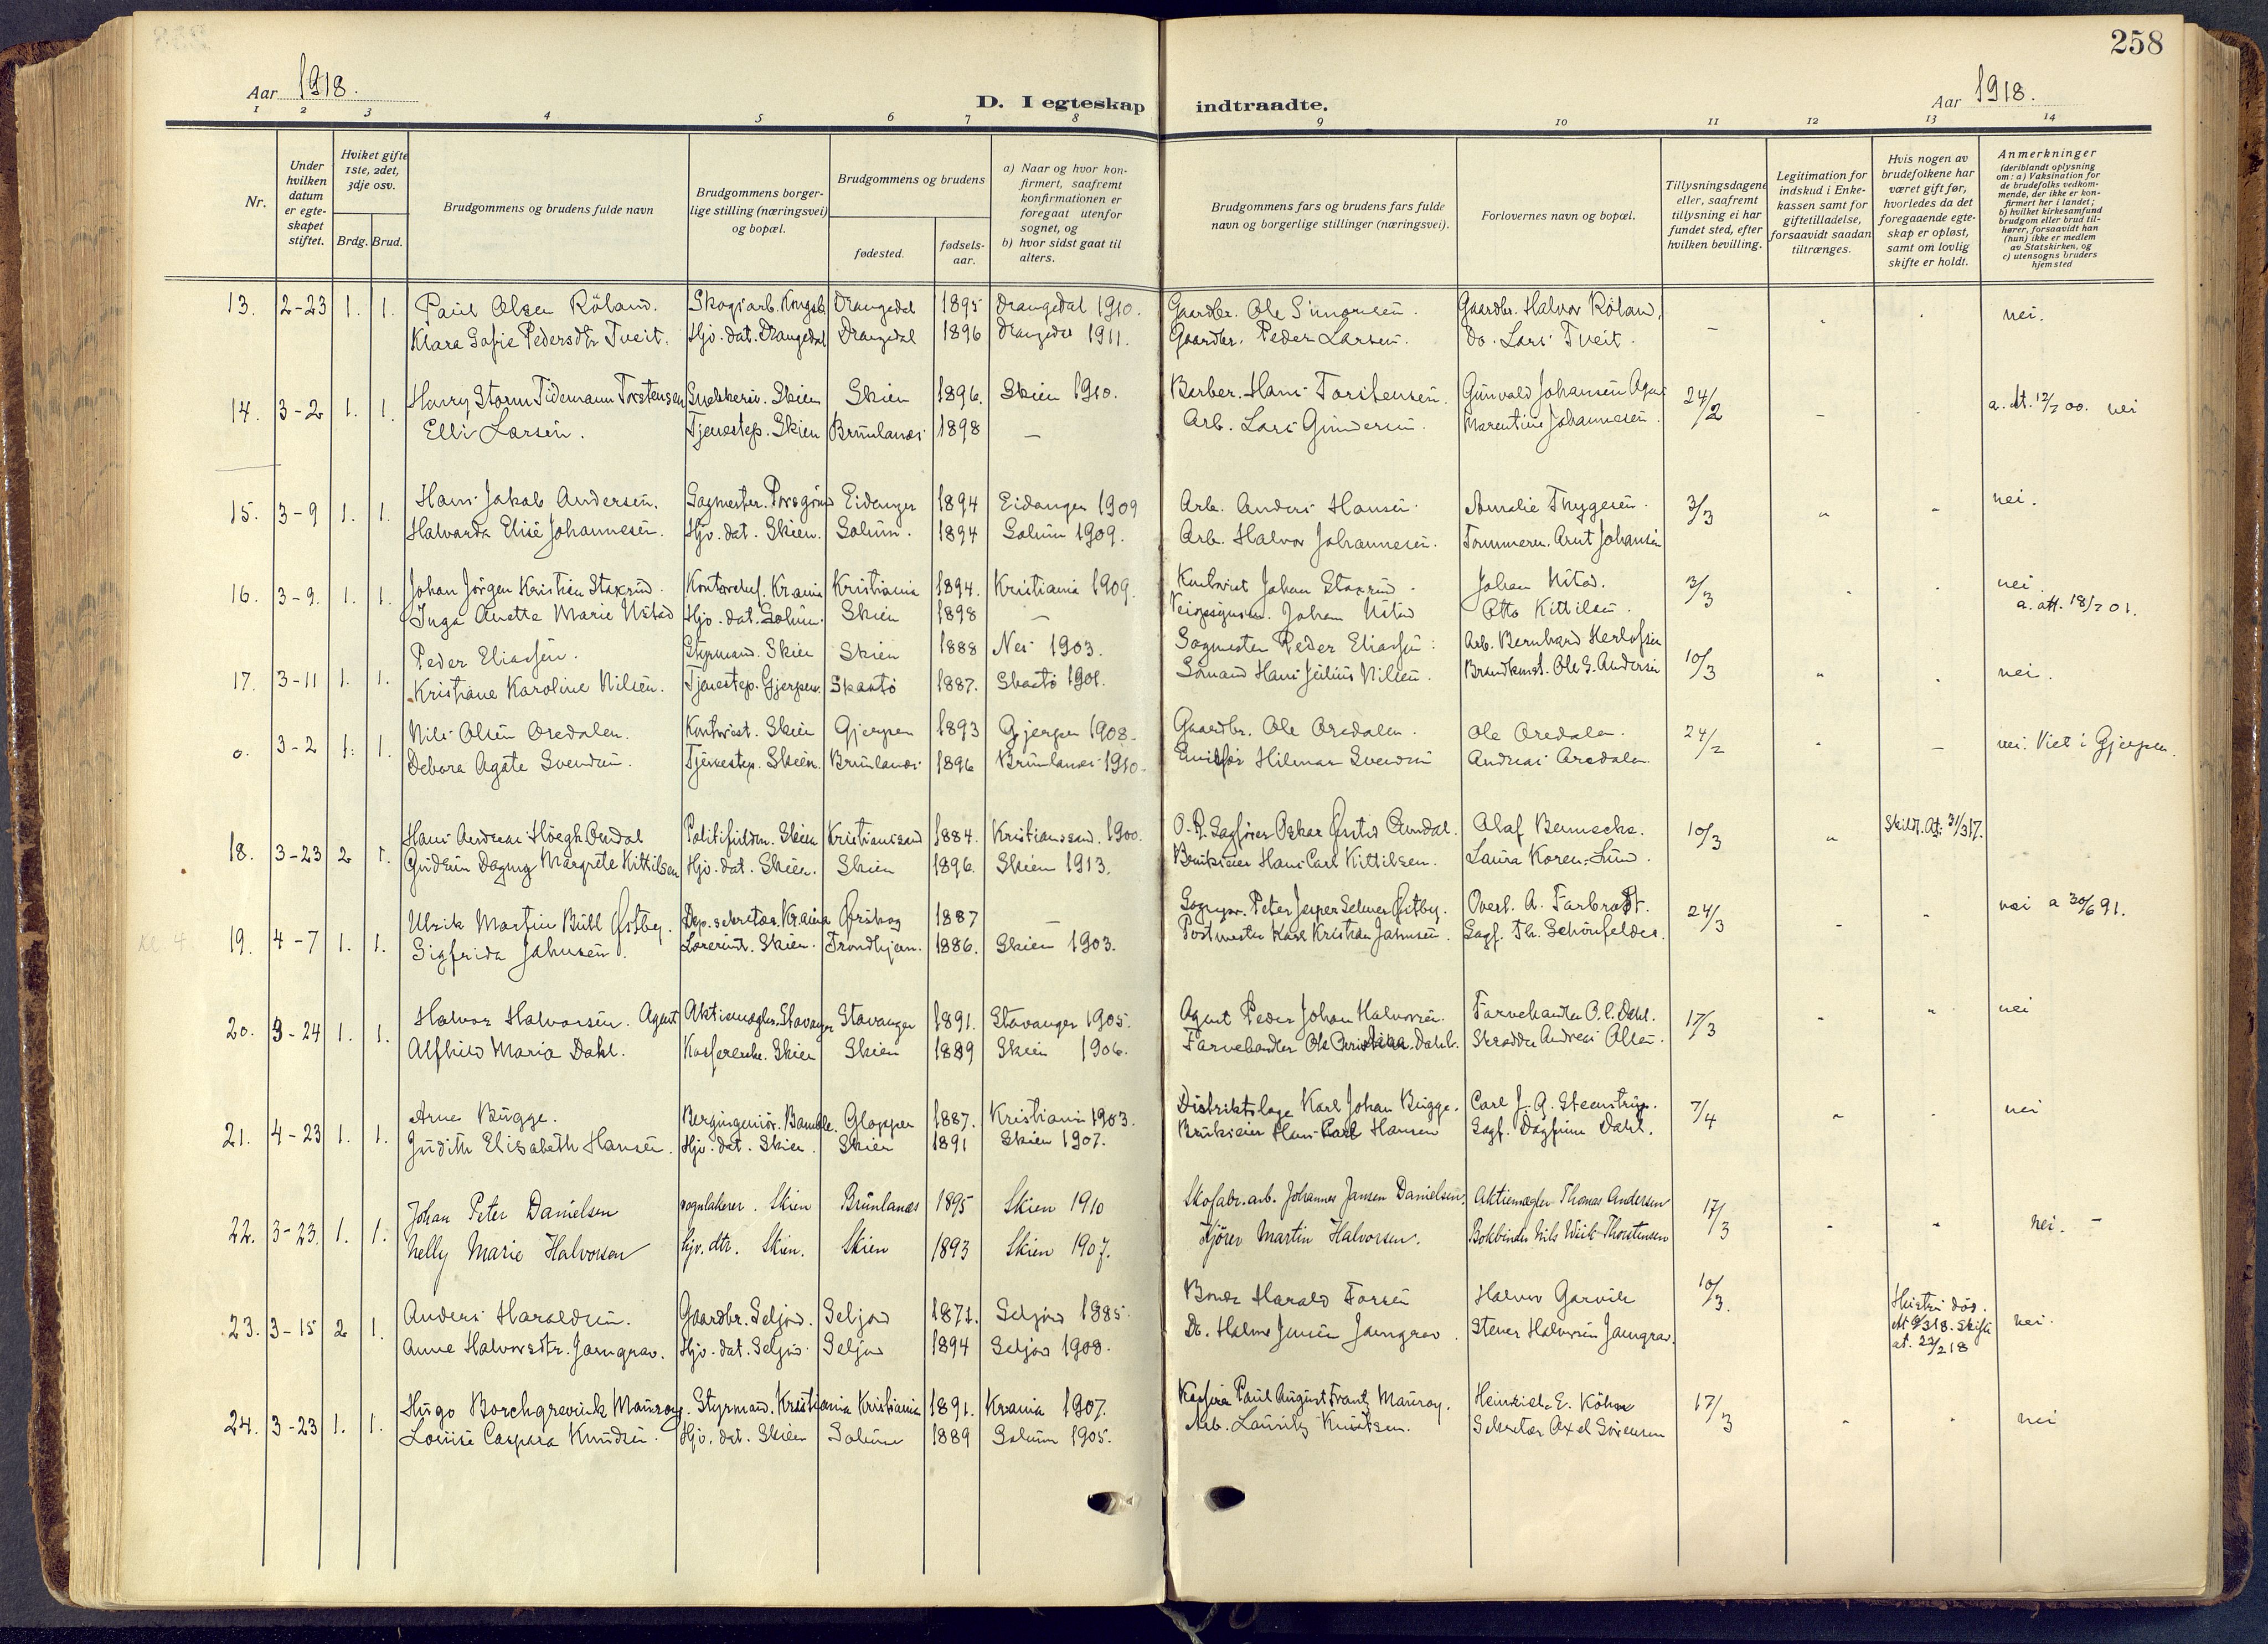 258
Aar 1918.
D. I egteskap indtraadte.
Aar 1918.
1 2 3 4 5 6 7 8 9 10 11 12 13 14
Nr.
Under hvilken datum er egte-skapet stiftet.
Hviket gifte 1ste, 2det, 3dje osv.
Brdg. Brud.
Brudgommens og brudens fulde navn
Brudgommens borger-lige stilling (næringsvei) og bopæl.
Brudgommens og brudens
fødested.
fødsels-aar.
a) Naar og hvor kon-firmert, saafremt konfirmationen er foregaat utenfor sognet, og
b) hvor sidst gaat til alters.
Brudgommens fars og brudens fars fulde navn og borgerlige stillinger (næringsvei).
Forlovernes navn og bopæl.
Tillysningsdagene eller, saafremt tillysning ei har fundet sted, efter hvilken bevilling.
Legitimation for indskud i Enke-kassen samt for giftetilladelse, forsaavidt saadan tiltrænges.
Hvis nogen av brudefolkene har været gift før, hvorledes da det foregaaende egte-skap er opløst, samt om lovlig skifte er holdt.
Anmerkninger (deriblandt oplysning om: a) Vaksination for de brudefolks vedkom-mende, der ikke er kon-firmert her i landet; b) hvilket kirkesamfund brudgom eller brud til-hører, forsaavidt han (hun) ikke er medlem av Statskirken, og c) utensogns bruders hjemsted
13. 2-23 1. 1. Paul Olsen Röland. Skogsarb. Drangedal 1895 Drangedal 1910. Gaardbr. Ole Simonsen. Gaardbr. Halvor Röland. nei.
Klara Sofie Pedersdtr Tveit. Hjv. dat. Drangedal Drangedal 1896 Drangedal 1911. Gaardbr. Peder Larsen. Do. Lars Tveit. -
14. 3-2 1. 1. Harry Storm Tidemann Torstensen Snekkersv. Skien Skien 1896. Skien 1910. Berber. Hans Torstensen. Gunvald Johansen Agent 24/2 a. att. 12/7 00. nei
Elli Larsen. Tjenestep. Skien Brunlanes 1898 - Arb. Lars Gundersen. Marentine Johannesen.
15. 3-9 1. 1. Hans Jakob Andersen. Sagmester. Porsgrund Eidanger 1894 Eidanger 1909 Arb. Anders Hansen. Amalie Thygesen. 3/3 nei.
Halvarda Elise Johannesen. Hjv. dat. Skien. Solum. 1894 Solum 1909. Arb. Halvor Johannesen. Tømmerm. Arnt Johansen
16. 3-9. 1. 1. Johan Jörgen Kristian Staxrud. Kontorchef. Krania Kristiania 1894. Kristiania 1909. Kontorist Johan Staxrud. Johan Ustad. 3/3 nei
Inga Anette Marie Ustad Hjv. dat. Solum. Skien 1898 - Johan Ustad Otto Kittilsen. a. att. 18/7 01.
17. 3-11 1. 1. Peder Eliassen. Styrmand. Skien Skien 1888 Nes 1903. Sagmester Peder Eliassen. Arb. Bernhard Herlofsen 10/3 nei.
Kristiane Karoline Nilsen. Tjenestep. Gjerpen. Skaatö 1887. Skaatö 1901. Sömand Hans Julius Nilsen. Brandkonst. Ole G. Andersen
o. 3-2 1. 1. Nils Olsen Oredalen. Kontorist. Skien Gjerpen 1893 Gjerpen 1908. Gaardbr. Ole Oredalen. Ole Oredalen. 24/2 - nei. Viet i Gjerpen.
Debora Agate Svendsen. Tjenestep. Skien. Brunlanes 1896 Brunlanes 1910. Hilmar Svendsen Andreas Oredalen.
18. 3-23 2 1. Hans Andreas Höegh Omdal Politifuldm. Skien Kristianssand 1884. Kristianssand. 1900. O.R. Sagfører Oskar Omdal. Olaf Bennecke. 10/3 Skilt. at. 31/3 17.
Gudrun Dagny Margrete Kittilsen Hjv. dat. Skien. Skien 1896. Skien 1913. Brukseier Hans Carl Kittilsen. Laura Koren-Lund.
19. 4-7 1. 1. Ulrik Martin Buhl Østby. Dep. sekretær. Krania Ørskog 1887 - Sognepr. Peter Jesper Selmer Østby. Overl. A. Farbrodt. 24/3 nei a 30/6 91.
Sigfrida Jahnsen. Lærerind. Skien. Trondhjem. 1886. Skien 1903. Postmester Karl Kristian Jahnsen. Sagf. Th. Schönfelder.
20. 3-24 1. 1. Halvor Halvorsen. Agent Aktiemægler. Stavanger Stavanger 1891. Stavanger 1905. Agent Peder Johan Halvorsen. Farvehandler O.C. Dahl. 17/3 nei
Alfhild Maria Dahl. Kassererske. Skien Skien 1889 Skien 1906. Farvehandler Ole Dahl. Skrædder Andreas Olsen.
21. 4-23 1. 1. Arne Bugge. Bergingeniör. Bamble. Gloppen 1887. Kristiania 1903. Distriktslæge Karl Johan Bugge. Carl J. A. Steenstrup. 7/4 nei
Judith Elisabeth Hansen. Hjv. dat. Skien. Skien 1891 Skien 1907. Brukseier Hans Carl Hansen Sagf. Dagfinn Dahl.
22. 3-23. 1. 1. Johan Peter Danielsen vognlakerer. Skien Brunlanes 1895 Skien 1910 Skofabr.arb. Johannes Jansen Danielsen. Aktiemægler Thomas Andersen 17/3 nei. -
Nelly Marie Halvorsen hjv. dtr. Skien. Skien 1893 Skien 1907. Kjörer Martin Halvorsen. Bokbinder Nils Wiik Thorstensen
23. 3-15 2 1. Anders Haraldsen. Gaardbr. Seljord. Seljord 1871. Seljord 1885. Bonde Harald Halvor Garvik 10/3. Hustru død. skifte at. 22/2 18 nei.
Anne Halvorsdtr. Jamgrav. Hjv. dat. Seljord. Seljord 1894 Seljord 1908. Do. Halvor Jensen Jamgrav. Stener Halvorsen Jamgrav.
24. 3-23 1. 1. Hugo Borchgrevink Manroy. Styrmand. Kristiania Kristiania 1891. Krania 1907. Paul August Frantz Manroy. Heinrich E. Köhn 17/3 nei
Louise Caspara Knudsen. Hjv. dat. Skien Solum 1889 Solum 1905. Arb. Lauritz Knutsen. Sekretær Axel Sörensen